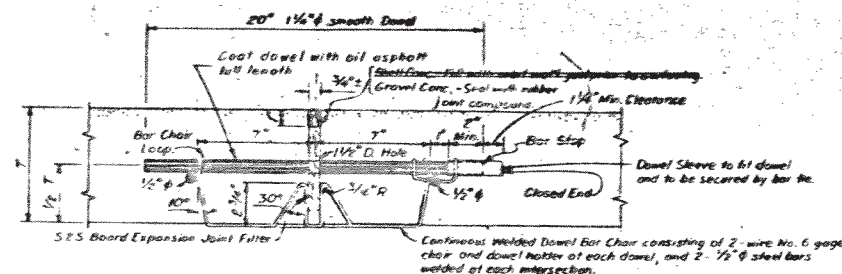 20" 1¼"ϕ smooth Dowel
Coat dowel with oil asphalt
full length
¾"±
Gravel Conc. - Seal with rubber
joint compound.
1¼" Min. Clearance
2"
Min.
Bar Chair
Loop.
7"
7"
1"
Bar Stop
1½" D. Hole
T
½ T
Dowel Sleeve to fit dowel
and to be secured by bar tie.
½"ϕ
2 3/16"
¾" R
½"ϕ
Closed End
10°
30°
S2S Board Expansion Joint Filler
Continuous Welded Dowel Bar Chair consisting of 2-wire No. 6 gage
chair and dowel holder at each dowel, and 2- ½"ϕ steel bars
welded at each intersection.